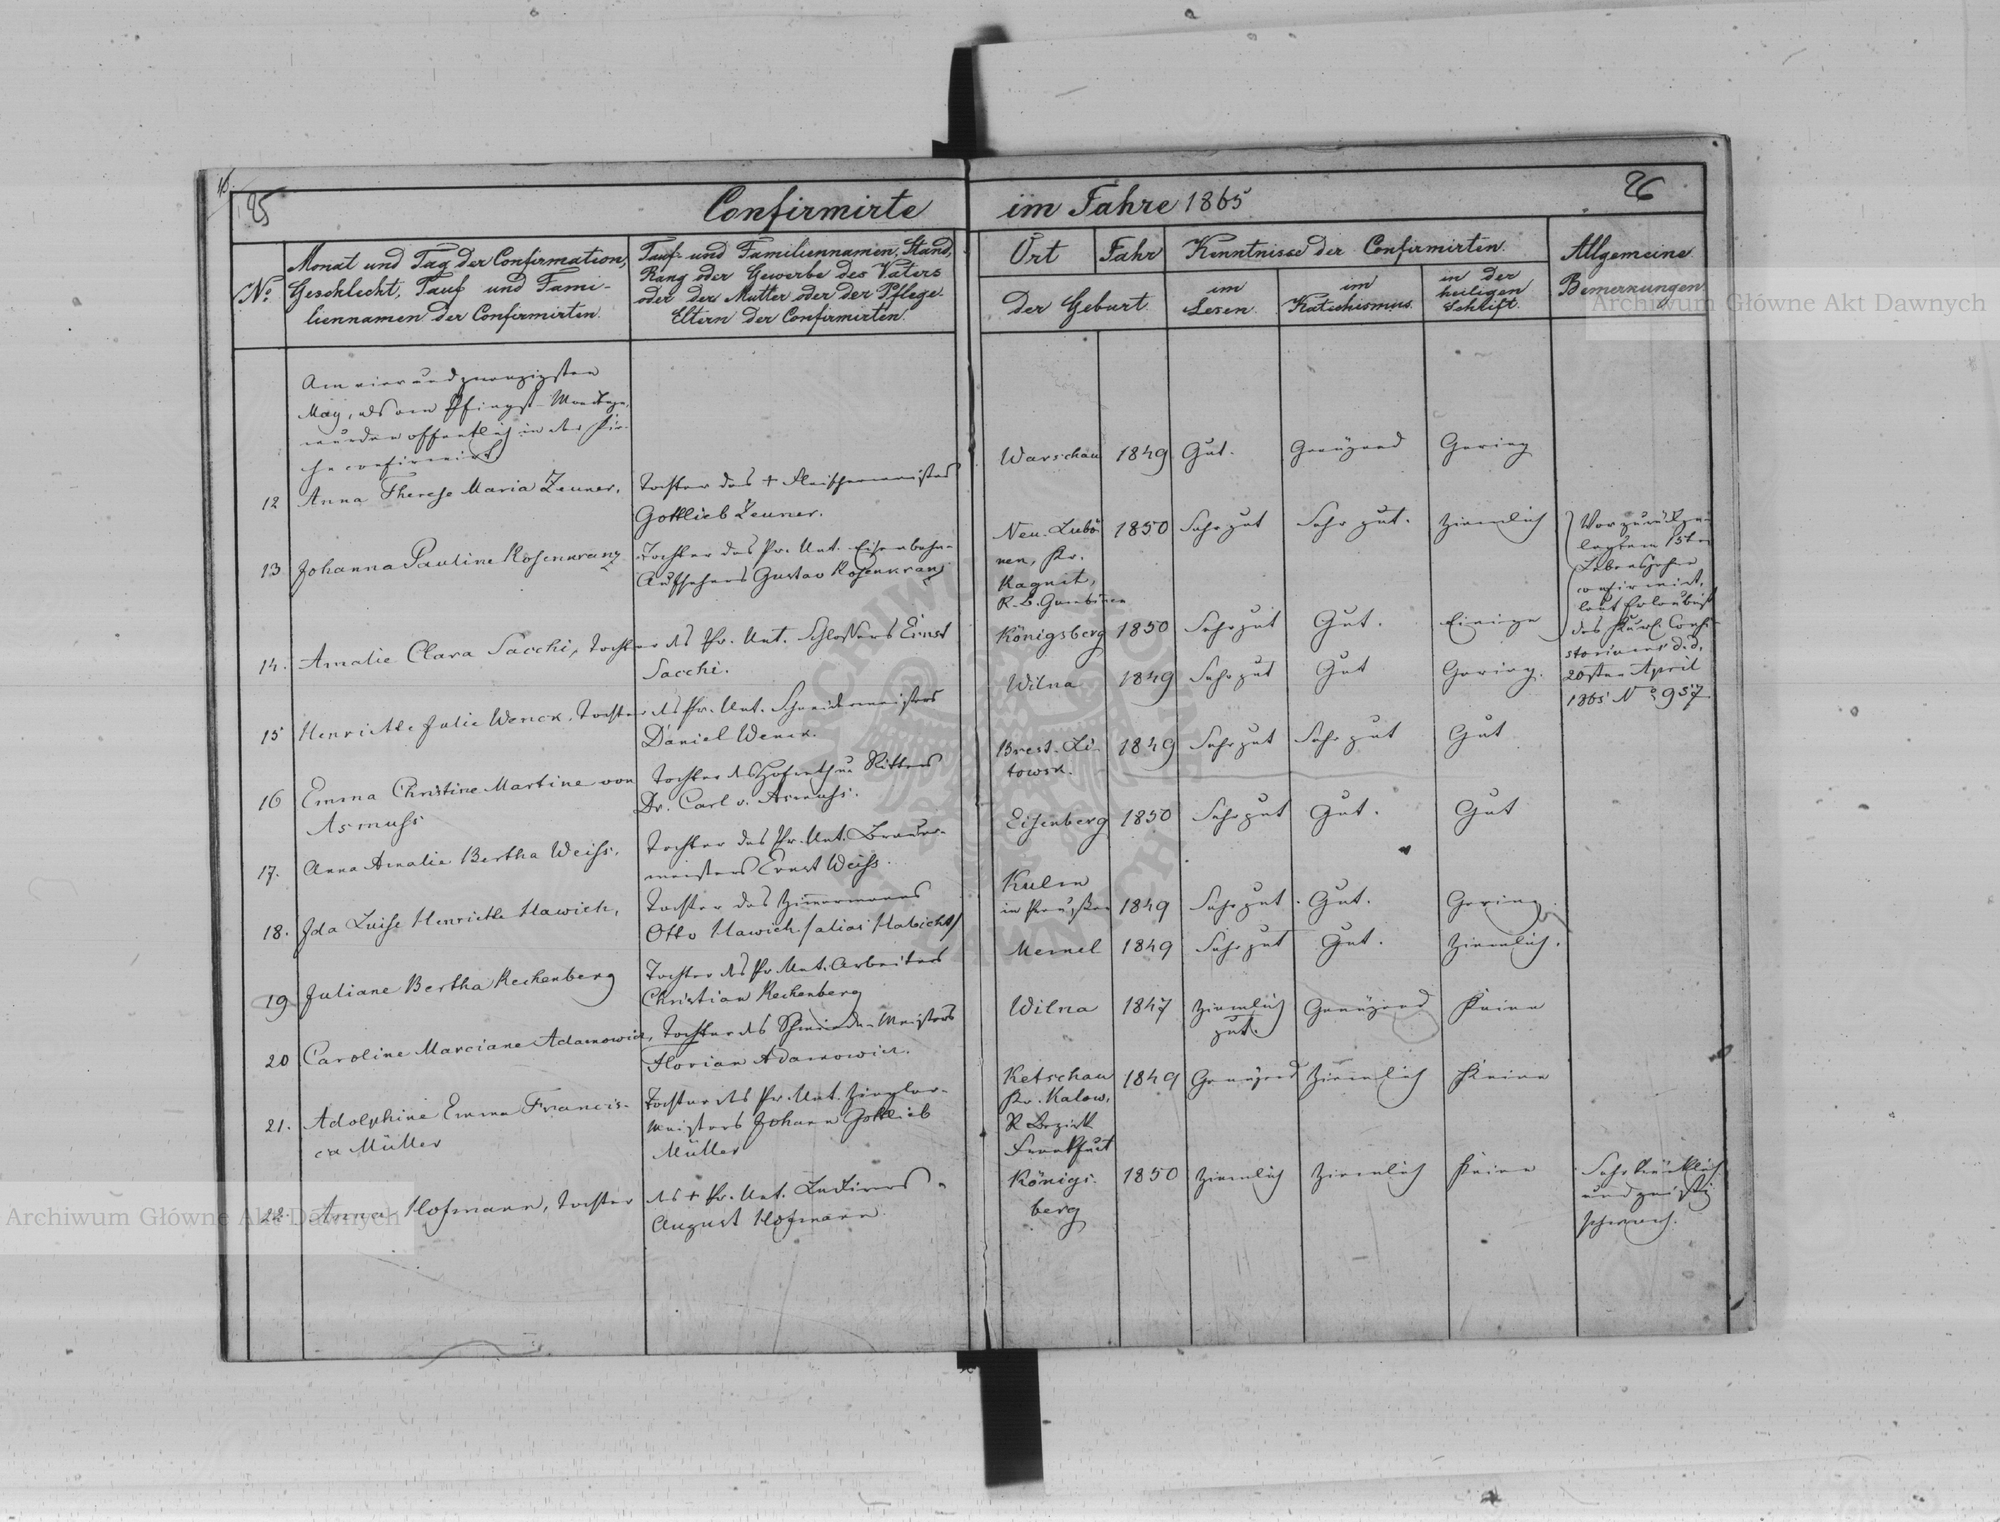 25
Confirmirte im Jahre 1865
26
№
Monat und Tag der Confirmation,
Geschlecht, Tauf und Fami-
liennamen der Confirmirten.
Tauf- und Familiennamen, Stand,
Rang oder Gewerbe des Vaters
oder der Mutter oder der Pflege-
Eltern der Confirmirten.
Ort Jahr
der Geburt.
Kenntnisse der Confirmirten.
im
Lesen.
im
Katechismus.
in der
heiligen
Schrift.
Allgemeine
Bemerkungen
Am vierundzwanzigsten
May, als am Pfingst-Montage,
wurden öffentlich in der Kir-
che confirmirt
12 Anna Therese Maria Zeuner,
Tochter des + Fleischermeisters
Gottlieb Zeuner.
Warschau 1849 Gut. Genügend Gering
13 Johanna Pauline Rosenkranz
Tochter des Pr. Unt. Eisenbahn-
Aufsehers Gustav Rosenkranz
Neu. Lubö-
nen, Kr.
Ragnit,
R. B. Gumbinnen
1850 Sehr gut Sehr gut. Ziemlich
Vor zurückge-
legtem 15ten
Lebensjahre
confirmirt,
laut Erlaubniß
des Kurl. Consi-
storiums d.d.
20sten April
1865 № 957
14. Amalie Clara Sacchi, Tochter des Pr. Unt. Schlossers Ernst
Sacchi.
Königsberg 1850 Sehr gut Gut. Einige
15 Henriette Julie Wenck, Tochter des Pr. Unt. Schneidermeisters
Daniel Wenck.
Wilna 1849 Sehr gut Gut Gering.
16 Emma Christine Martine von
Asmuss
Tochter des Hofrath u. Ritters
Dr. Carl v. Asmuss.
Brest-Li-
towsk.
1849 Sehr gut Sehr gut Gut
17. Anna Amalie Bertha Weiss.
Tochter des Pr. Unt. Brauer-
meisters Ernst Weiss.
Eisenberg 1850 Sehr gut Gut. Gut
18. Ida Luise Henriette Hawich,
Tochter des Zimmermanns
Otto Hawich /alias Habicht/
Kulm
in Preußen 1849 Sehr gut. Gut. Gering.
19 Juliane Bertha Rechenberg
Tochter des Pr. Unt. Arbeiters
Christian Rechenberg
Memel 1849 Sehr gut Gut. Ziemlich.
20 Caroline Marciane Adamowicz, Tochter des Schmiede-Meisters
Florian Adamowicz.
Wilna 1847 Ziemlich
gut. Genügend Keine
21. Adolphine Emma Francis-
ca Müller
Tochter des Pr. Unt. Ziegler-
Meisters Johann Gottlieb
Müller
Ketschau
Kr. Kalow,
R. Bezirk
Frankfurt
1849 Genügend Ziemlich Keine
22. Anna Hofmann, Tochter des + Pr. Unt.
August Hofmann.
Königs-
berg
1850 Ziemlich Ziemlich Keine
Sehr kränklich
und geistig
schwach.
Archiwum Główne Akt Dawnych
Archiwum Główne Akt Dawnych